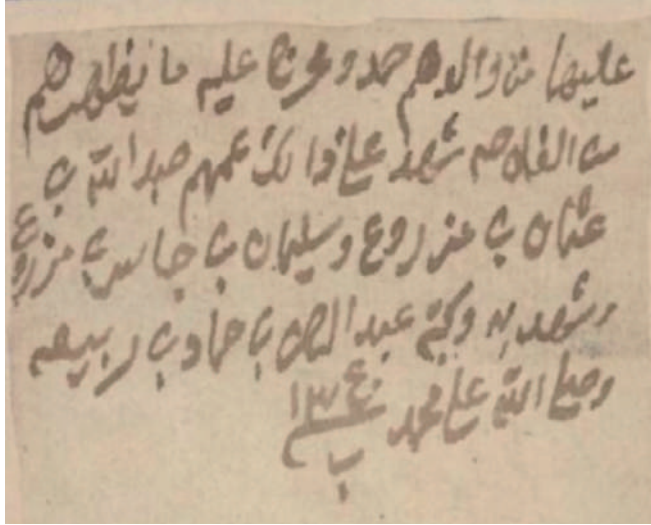 عليها من والدهم حمد و عليه ما يظهر هم
من شهد على ذالك عمهم عبد الله بن
عثمان بن مزروع وسليمان بن جاسر بن مزروع
وشهد به وكتبه عبد الرحمن بن حماد بن ربيعه
وصلى الله على محمد